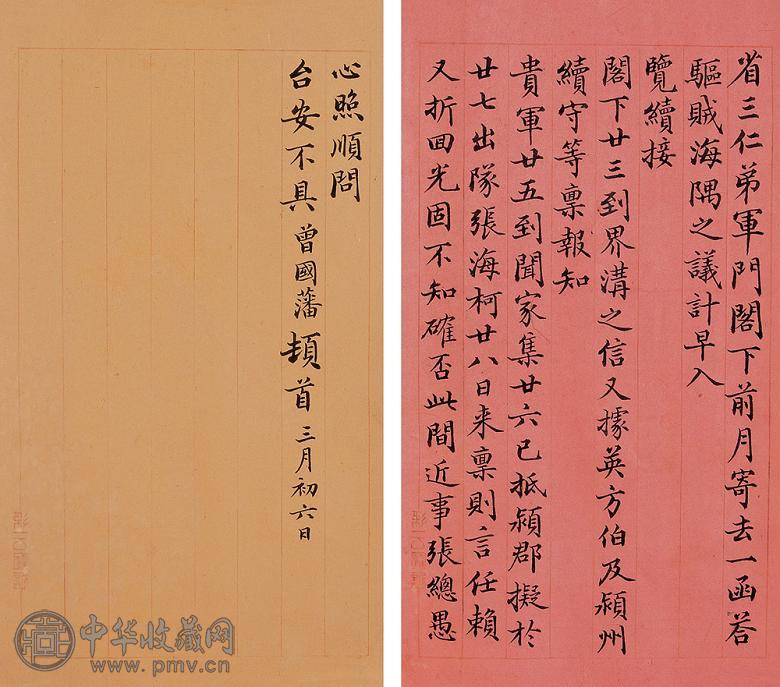 省三仁弟軍門閣下前月寄去一函答
驅賊海隅之議計早入
覽續接
閣下廿三到界溝之信又據英方伯及潁州
續守等稟報知
貴軍廿五到聞家集廿六已抵潁郡擬於
廿七出隊張海柯廿八日来稟則言任賴
又折回光固不知確否此間近事張總愚
心照順問
台安不具曾國藩頓首三月初六日
中华收藏网
www.pmv.cn